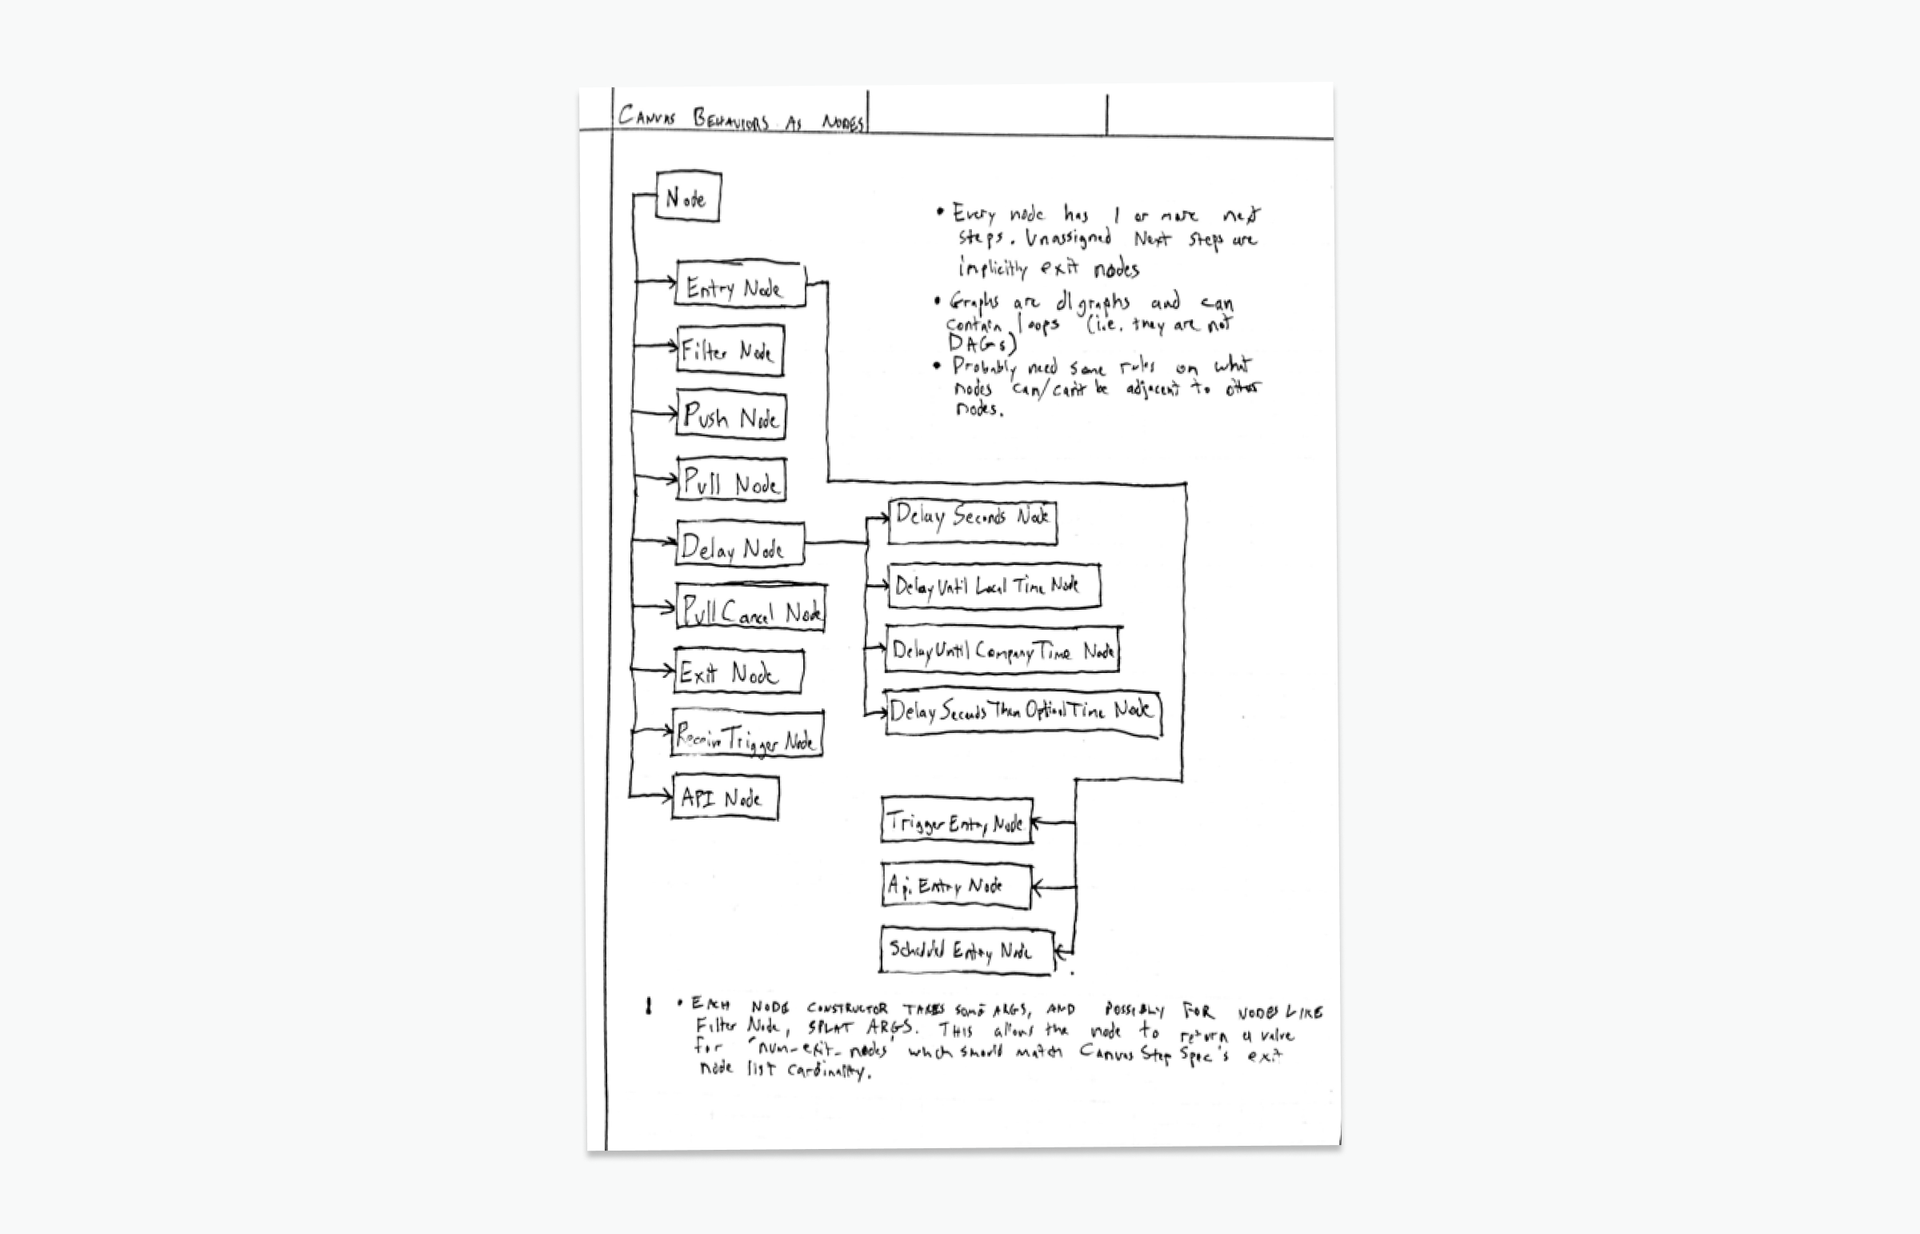 CANVAS BEHAVIORS AS NODES
Node
Entry Node
Filter Node
Push Node
Pull Node
Delay Node
Pull Cancel Node
Exit Node
Receive Trigger Node
API Node
• Every node has 1 or more next
steps. Unassigned Next steps are
implicitly exit nodes
• Graphs are digraphs and can
contain loops (i.e. they are not
DAGs)
• Probably need some rules on what
nodes can/can't be adjacent to other
nodes.
Delay Seconds Node
Delay Until Local Time Node
Delay Until Company Time Node
Delay Seconds Then Optional Time Node
Trigger Entry Node
Api Entry Node
Scheduled Entry Node
1 • EACH NODE CONSTRUCTOR TAKES some ARGS, AND POSSIBLY FOR NODES LIKE
Filter Node, SPLAT ARGS. THIS allows the node to return a value
for 'num-exit-nodes' which should match Canvas Step Spec's exit
node list cardinality.